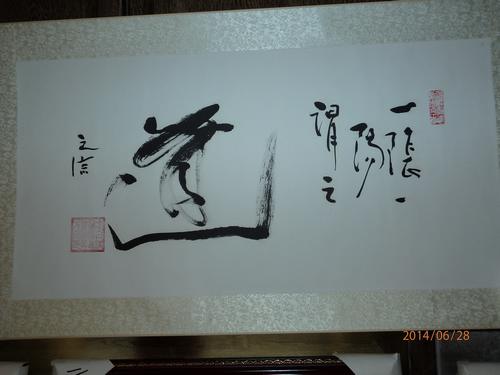 一陰一
陽
謂之
道
之信
2014/06/28